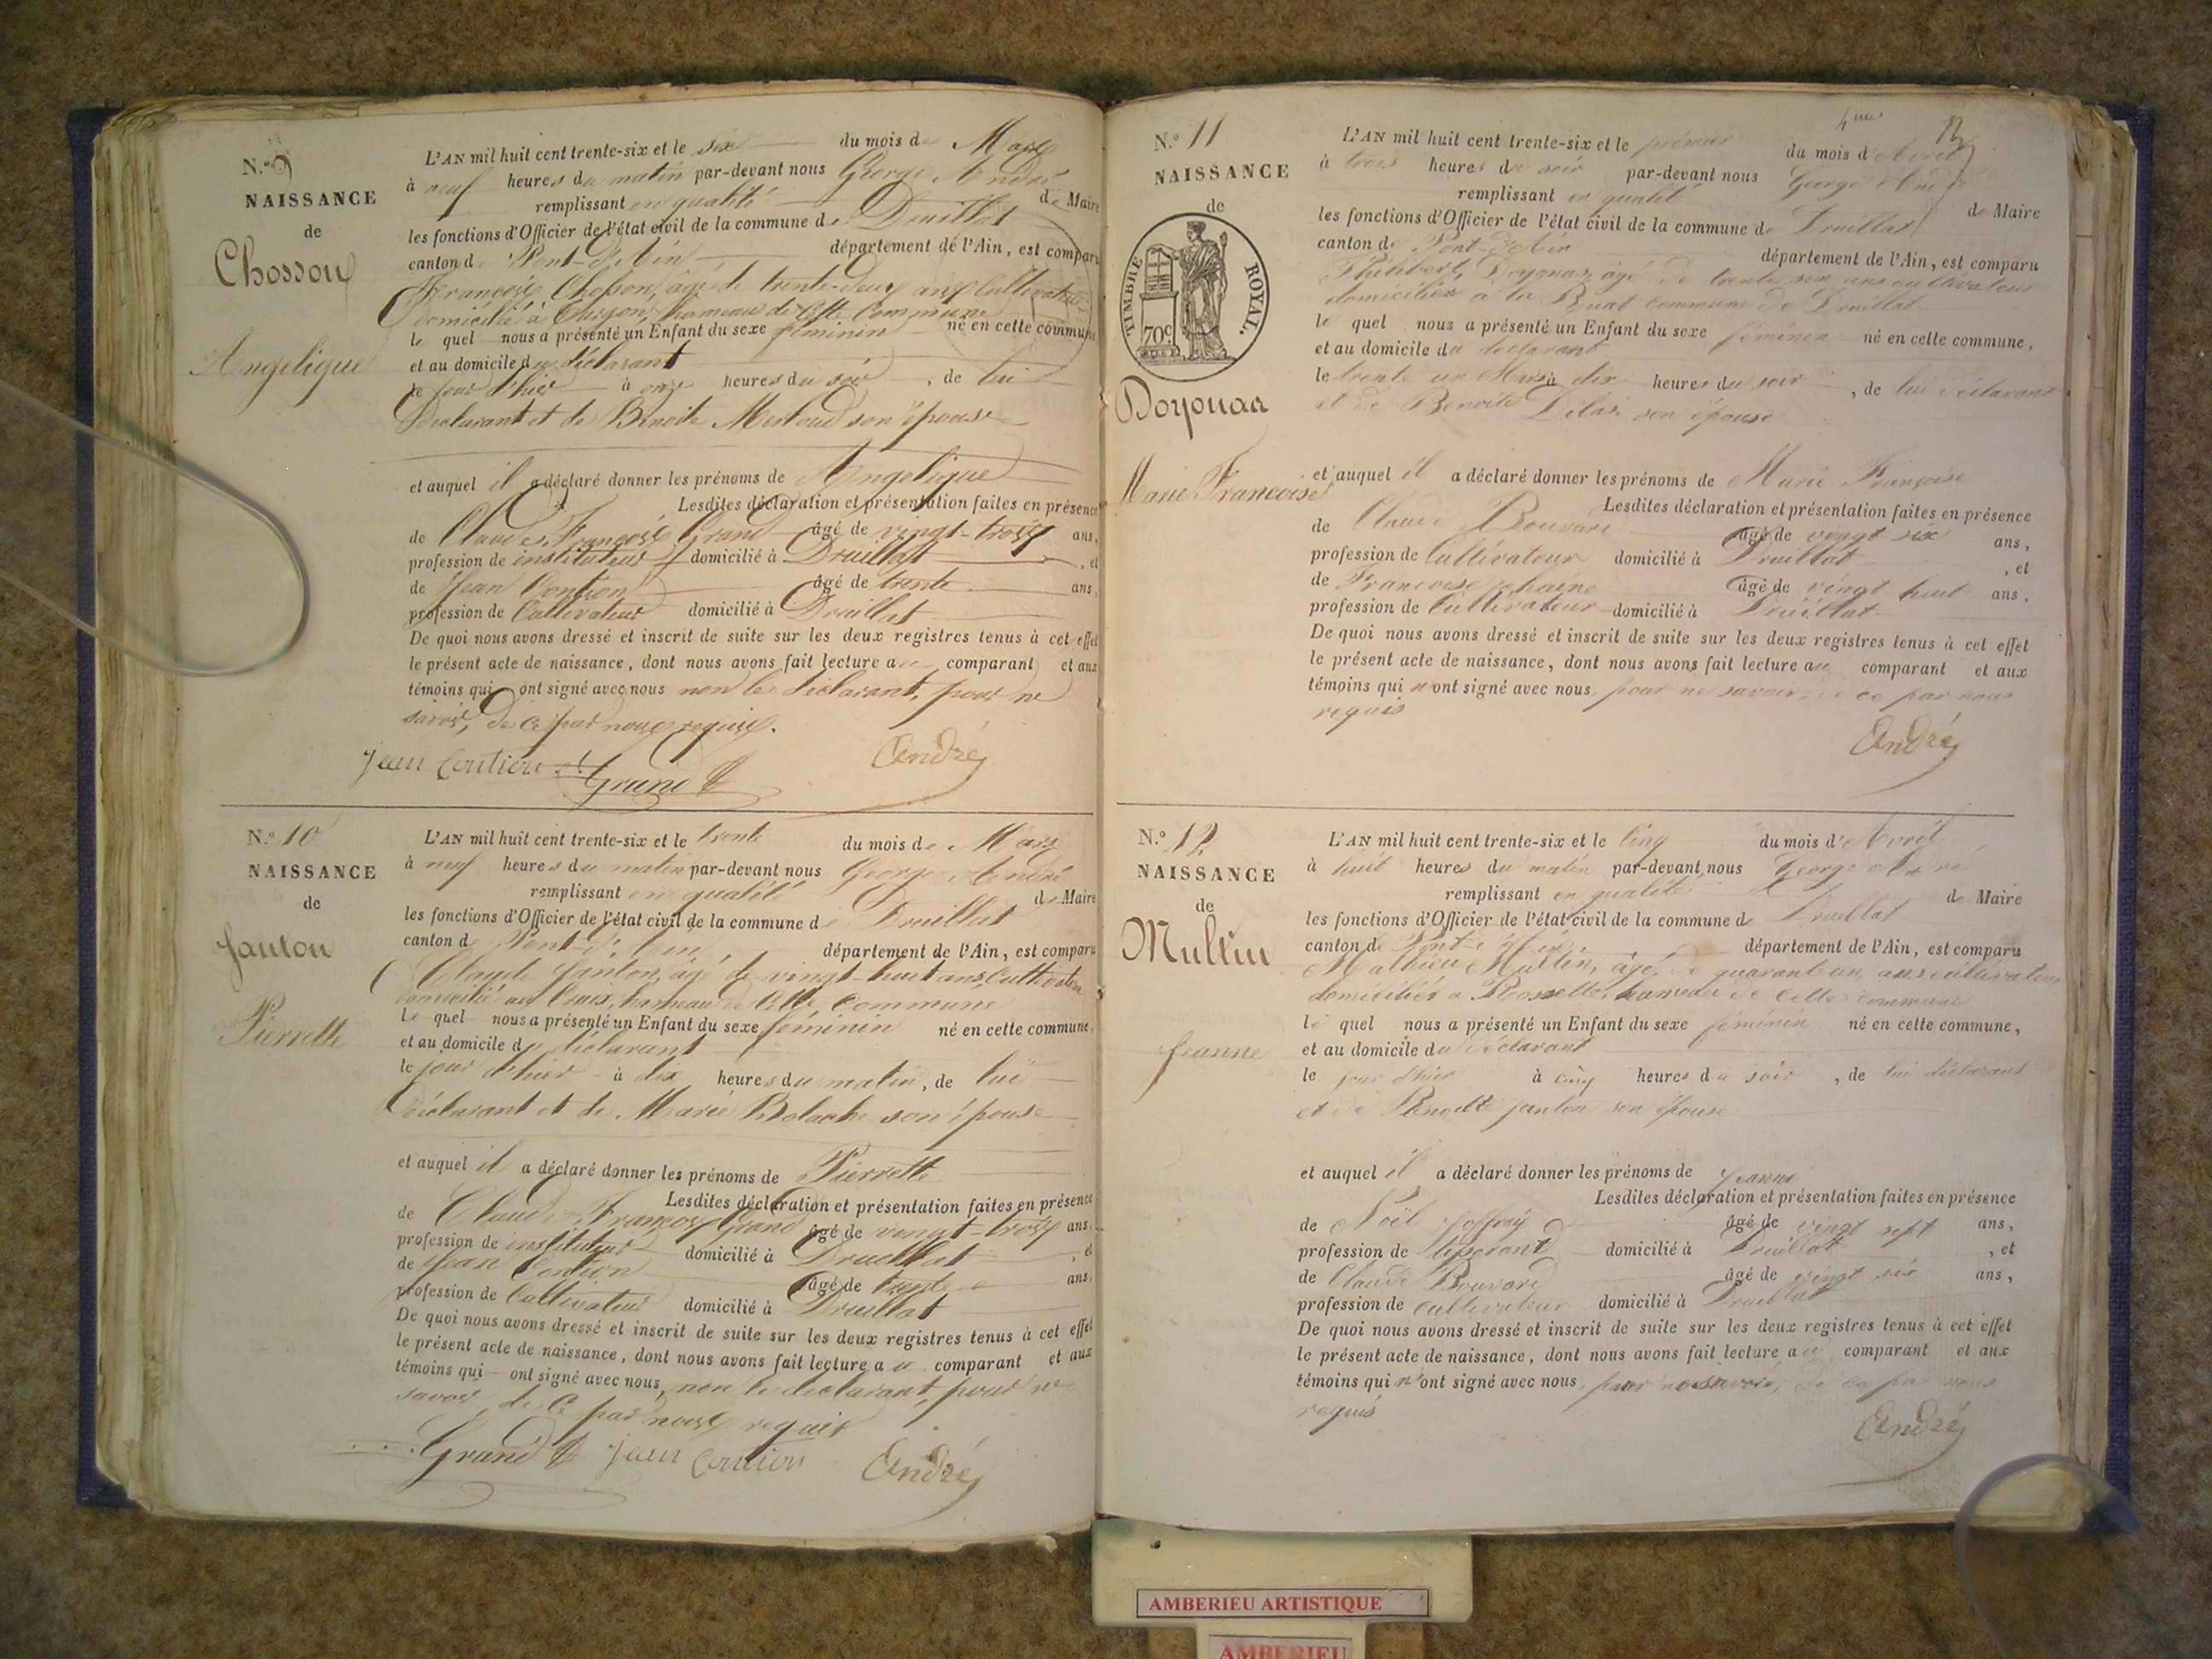 N.o 9
NAISSANCE
de
Chosson
Angelique
L'AN mil huit cent trente-six et le six du mois de Mars
à neuf heures du matin par-devant nous George André
remplissant en qualité de Maire
les fonctions d'Officier de l'état civil de la commune de Druillat
canton de Pont-d'Ain département de l'Ain, est comparu
François Chosson, âgé de trente-deux ans cultivateur
domicilié à hameau de cette Commune
le quel nous a présenté un Enfant du sexe féminin né en cette commune
et au domicile du déclarant
le jour d'hier à onze heures du soir, de lui
Déclarant et de Benoite son épouse
et auquel il a déclaré donner les prénoms de Angelique
Lesdites déclaration et présentation faites en présence
de Claude François Grand âgé de vingt-trois ans,
profession de instituteur domicilié à Druillat, et
de Jean Contion âgé de trente ans,
profession de Cultivateur domicilié à Druillat
De quoi nous avons dressé et inscrit de suite sur les deux registres tenus à cet effet
le présent acte de naissance, dont nous avons fait lecture au comparant et aux
témoins qui ont signé avec nous non le déclarant, pour ne
savoir, de ce par nous requis.
Jean Contion Grand André
N.o 10
NAISSANCE
de
Janton
Pierrette
L'AN mil huit cent trente-six et le trente du mois de Mars
à neuf heures du matin par-devant nous George André
remplissant en qualité de Maire
les fonctions d'Officier de l'état civil de la commune de Druillat
canton de Pont-d'Ain, département de l'Ain, est comparu
Claude Janton, âgé de vingt-huit ans, Cultivateur
domicilié au hameau de cette Commune
le quel nous a présenté un Enfant du sexe féminin né en cette commune,
et au domicile du déclarant
le jour d'hier à dix heures du matin, de lui
déclarant et de Marie Bolache son épouse
et auquel il a déclaré donner les prénoms de Pierrette
Lesdites déclaration et présentation faites en présence
de Claude François Grand âgé de vingt-trois ans,
profession de instituteur domicilié à Druillat, et
de Jean Contion âgé de trente ans,
profession de Cultivateur domicilié à Druillat
De quoi nous avons dressé et inscrit de suite sur les deux registres tenus à cet effet
le présent acte de naissance, dont nous avons fait lecture au comparant et aux
témoins qui ont signé avec nous, non le déclarant, pour ne
savoir, de ce par nous requis
Grand Jean Contion André
N.o 11
NAISSANCE
de
TIMBRE ROYAL.
70c
Doyonax
Marie Francoise
L'AN mil huit cent trente-six et le premier du mois d'Avril
à trois heures du soir par-devant nous George André
remplissant en qualité de Maire
les fonctions d'Officier de l'état civil de la commune de Druillat
canton de Pont-d'Ain département de l'Ain, est comparu
Philibert Doyonax âgé de trente six ans cultivateur
domicilié à la Ruat commune de Druillat
le quel nous a présenté un Enfant du sexe féminin né en cette commune,
et au domicile du déclarant
le trente un Mars à dix heures du soir, de lui déclarant
et de Benoite son épouse
et auquel il a déclaré donner les prénoms de Marie Françoise
Lesdites déclaration et présentation faites en présence
de Claude Bouvard âgé de vingt six ans,
profession de Cultivateur domicilié à Druillat, et
de Francoise âgé de vingt huit ans,
profession de Cultivateur domicilié à Druillat
De quoi nous avons dressé et inscrit de suite sur les deux registres tenus à cet effet
le présent acte de naissance, dont nous avons fait lecture au comparant et aux
témoins qui n'ont signé avec nous, pour ne savoir, de ce par nous
requis
André
N.o 12
NAISSANCE
de
Mullin
Jeanne
L'AN mil huit cent trente-six et le Cinq du mois d'Avril
à huit heures du matin par-devant nous George André
remplissant en qualité de Maire
les fonctions d'Officier de l'état civil de la commune de Druillat
canton de Pont-d'Ain département de l'Ain, est comparu
Mathieu Mullin, âgé de quarante un ans cultivateur
domicilié à Rossette, hameau de cette commune
le quel nous a présenté un Enfant du sexe féminin né en cette commune,
et au domicile du déclarant
le jour d'hier à cinq heures du soir, de lui déclarant
et de Benoîte Janton son épouse
et auquel il a déclaré donner les prénoms de Jeanne
Lesdites déclaration et présentation faites en présence
de Noël Joffray âgé de vingt sept ans,
profession de tisserand domicilié à Druillat, et
de Claude Bouvard âgé de vingt six ans,
profession de cultivateur domicilié à Druillat
De quoi nous avons dressé et inscrit de suite sur les deux registres tenus à cet effet
le présent acte de naissance, dont nous avons fait lecture au comparant et aux
témoins qui n'ont signé avec nous, pour ne savoir, de ce par nous
requis
André
AMBERIEU ARTISTIQUE
AMBERIEU